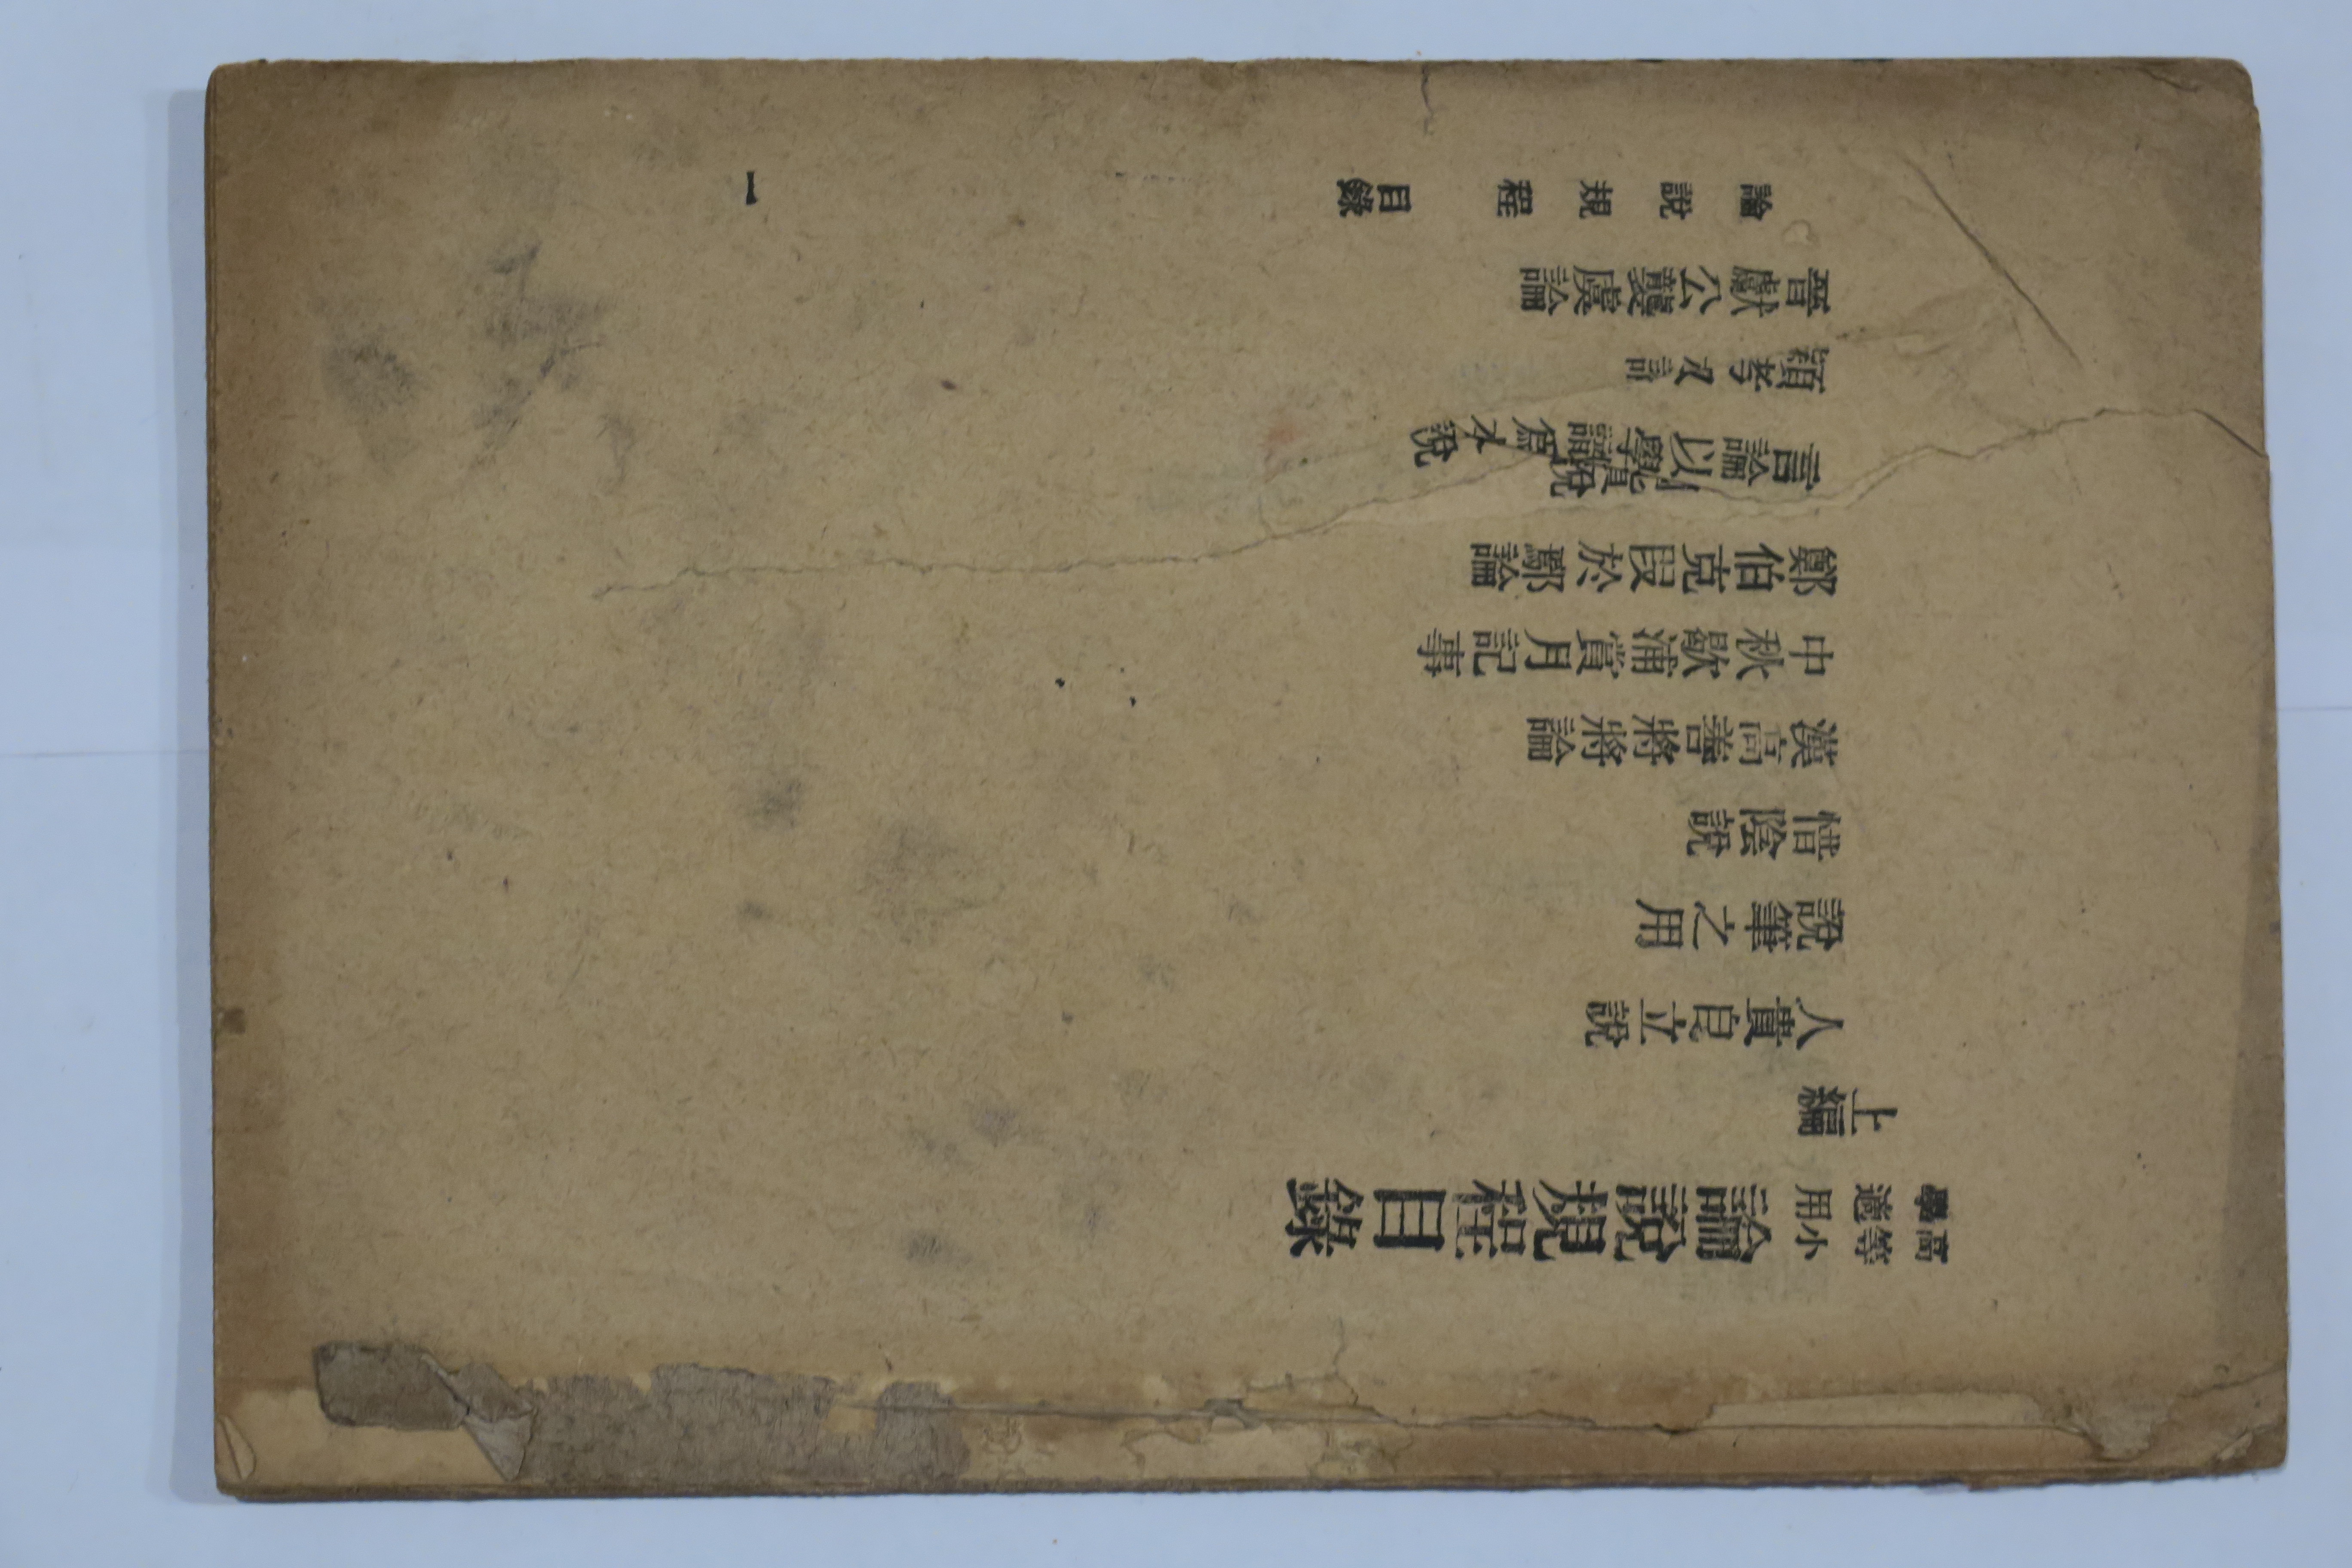 高等小學適用
論說規程目錄
上編
人貴自立說
說筆之用
惜陰說
漢高善將將論
中秋歇浦賞月記事
鄭伯克段於鄢論
言論以學爲本說
穎考
晉獻公襲虞論
論說規程 目錄 一